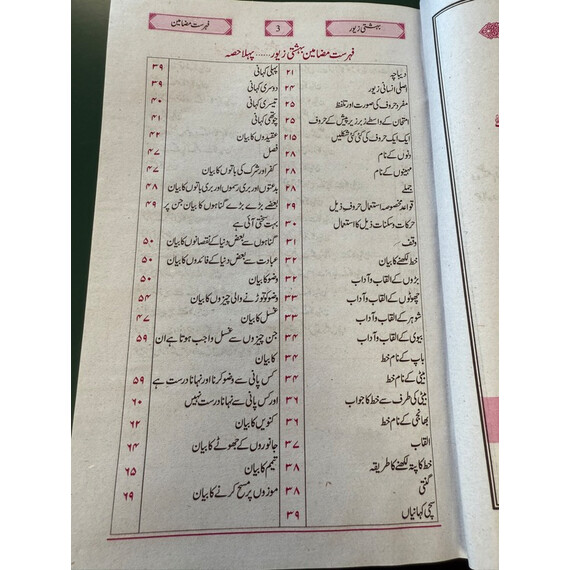 بہشتی زیور
3
فہرست مضامین
فہرست مضامین بہشتی زیور...... پہلا حصہ
دیباچہ ۲۱
اصلی انسانی زیور ۲۴
مفرد حروف کی صورت اور تلفظ ۲۵
امتحان کے واسطے زبر زیر پیش کے حروف ۲۵
ایک ایک حرف کی کئی کئی شکلیں ۲۱۵
دنوں کے نام ۲۸
مہینوں کے نام ۲۸
جملے ۲۸
قواعد مخصوصہ استعمال حروف ذیل ۲۹
حرکات و سکنات ذیل کا استعمال ۳۰
وقف ۳۱
خط لکھنے کا بیان ۳۲
بڑوں کے القاب و آداب ۳۲
چھوٹوں کے القاب و آداب ۳۳
شوہر کے القاب و آداب ۳۳
بیوی کے القاب و آداب ۳۴
باپ کے نام خط ۳۴
بیٹی کے نام خط ۳۴
بیٹی کی طرف سے خط کا جواب ۳۶
بھانجی کے نام خط ۳۶
القاب ۳۷
خط کا پتہ لکھنے کا طریقہ ۳۸
گنتی ۳۸
سچی کہانیاں ۳۹
پہلی کہانی ۳۹
دوسری کہانی ۳۹
تیسری کہانی ۴۰
چوتھی کہانی ۴۱
عقیدوں کا بیان ۴۲
فصل ۴۷
کفر اور شرک کی باتوں کا بیان ۴۷
بدعتوں اور بری رسموں اور بری باتوں کا بیان ۴۸
بعضے بڑے بڑے گناہوں کا بیان جن پر ۴۹
بہت سختی آئی ہے
گناہوں سے بعض دنیا کے نقصانوں کا بیان ۵۰
عبادت سے بعض دنیا کے فائدوں کا بیان ۵۰
وضو کا بیان ۵۰
وضو کو توڑنے والی چیزوں کا بیان ۵۴
غسل کا بیان ۴۷
جن چیزوں سے غسل واجب ہوتا ہے ان ۵۹
کا بیان
کس پانی سے وضو کرنا اور نہانا درست ہے ۵۹
اور کس پانی سے نہانا درست نہیں ۶۰
کنویں کا بیان ۶۲
جانوروں کے جھوٹے کا بیان ۶۴
تیمم کا بیان ۶۵
موزوں پر مسح کرنے کا بیان ۶۹